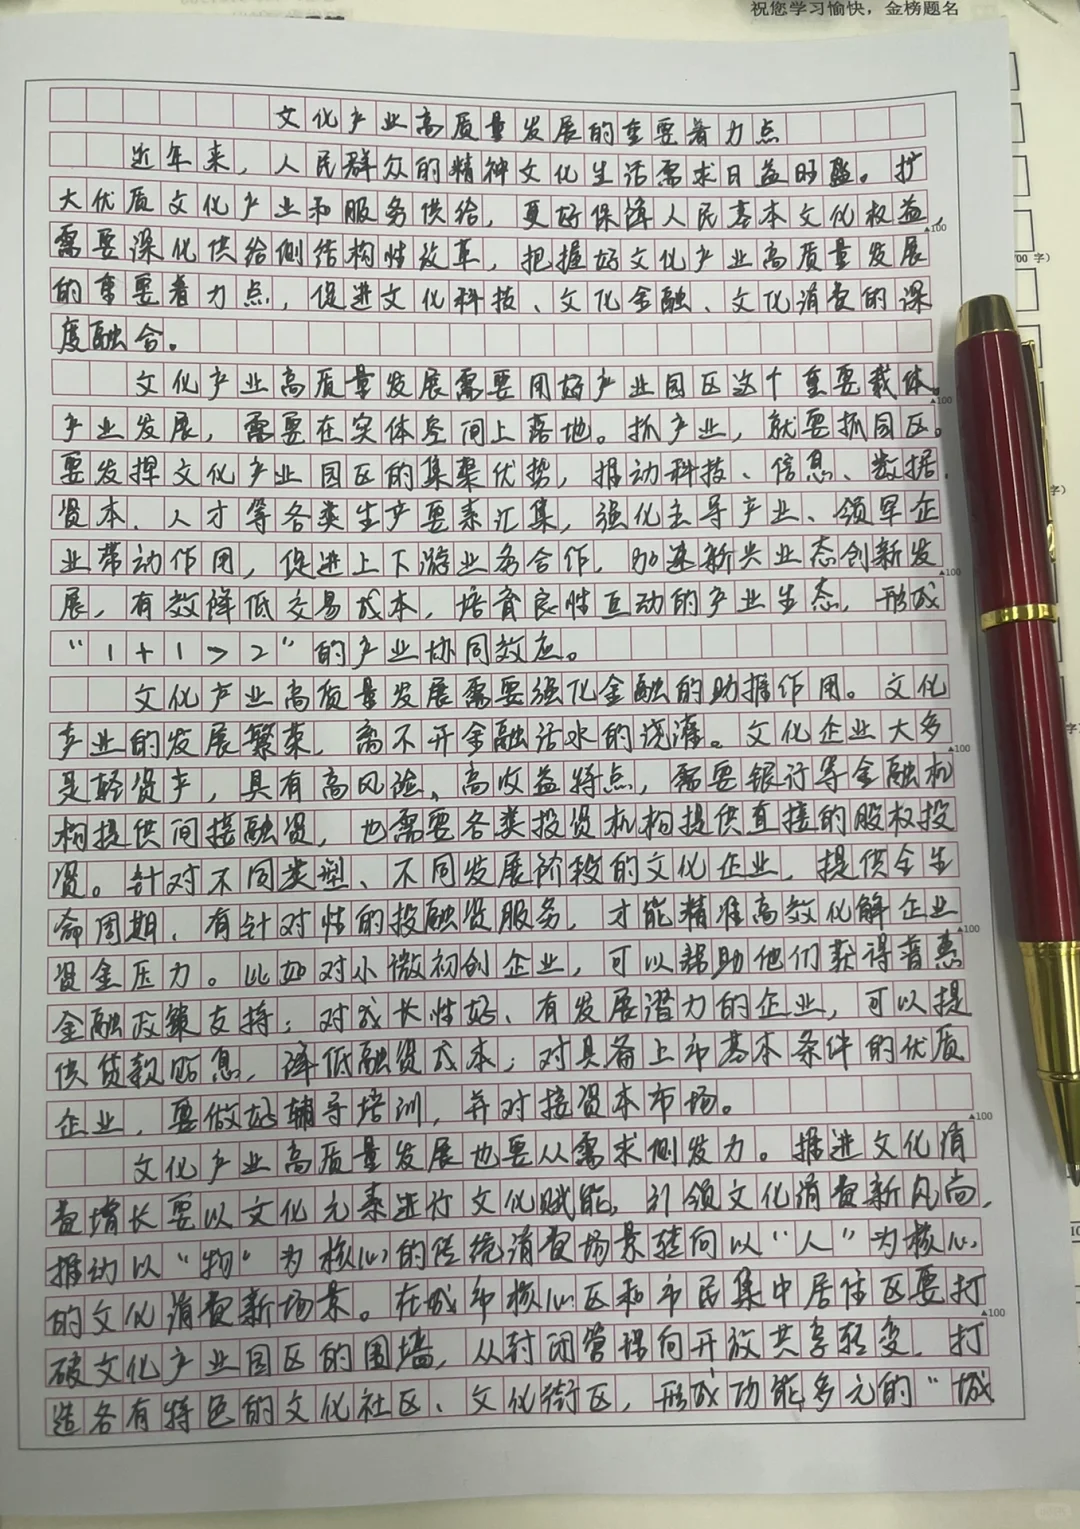 祝您学习愉快，金榜题名
文化产业高质量发展的重要着力点
近年来，人民群众的精神文化生活需求日益旺盛。扩
大优质文化产业和服务供给，更好保障人民基本文化权益，
需要深化供给侧结构性改革，把握好文化产业高质量发展
▲100
00 字）
的重要着力点，促进文化科技、文化金融、文化消费的深
度融合。
文化产业高质量发展需要用好产业园区这个重要载体。
▲100
产业发展，需要在实体空间上落地。抓产业，就要抓园区。
要发挥文化产业园区的集聚优势，推动科技、信息、数据、
字）
资本、人才等各类生产要素汇集，强化主导产业、领军企
业带动作用，促进上下游业务合作，加速新兴业态创新发
▲100
展，有效降低交易成本，培育良性互动的产业生态，形成
“1+1>2”的产业协同效应。
文化产业高质量发展需要强化金融的助推作用。文化
产业的发展繁荣，离不开金融活水的浇灌。文化企业大多
▲100
是轻资产，具有高风险、高收益特点，需要银行等金融机
构提供间接融资，也需要各类投资机构提供直接的股权投
资。针对不同类型、不同发展阶段的文化企业，提供全生
命周期、有针对性的投融资服务，才能精准高效化解企业
▲100
资金压力。比如对小微初创企业，可以帮助他们获得普惠
金融政策支持；对成长性好、有发展潜力的企业，可以提
供贷款贴息，降低融资成本；对具备上市基本条件的优质
企业，要做好辅导培训，并对接资本市场。
▲100
文化产业高质量发展也要从需求侧发力。推进文化消
费增长要以文化元素进行文化赋能，引领文化消费新风尚，
推动以“物”为核心的传统消费场景转向以“人”为核心
的文化消费新场景。在城市核心区和市民集中居住区要打
▲100
破文化产业园区的围墙，从封闭管理向开放共享转变，打
造各有特色的文化社区、文化街区，形成功能多元的“城